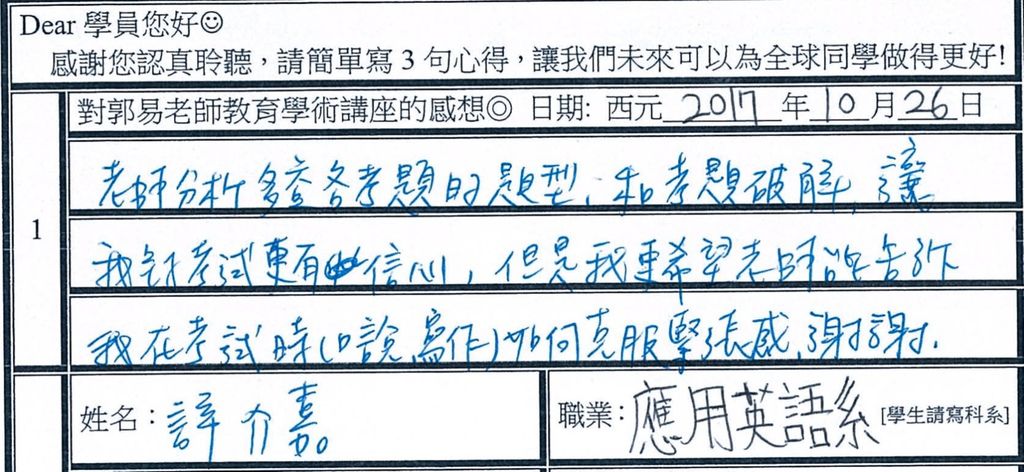 Dear 學員您好☺
感謝您認真聆聽，請簡單寫 3 句心得，讓我們未來可以為全球同學做得更好!
1
對郭易老師教育學術講座的感想◎ 日期: 西元 2017 年 10 月 26 日
老師分析多益各考題的題型,和考題破解,讓
我對考試更有信心,但是我更希望老師能告訴
我在考試時(口說寫作)如何克服緊張感,謝謝.
姓名：許介嘉 職業：應用英語系 [學生請寫科系]